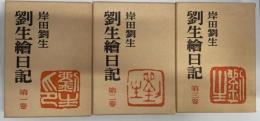 岸田劉生
劉生繪日記
第一卷
岸田劉生
劉生繪日記
第二卷
岸田劉生
劉生繪日記
第三卷